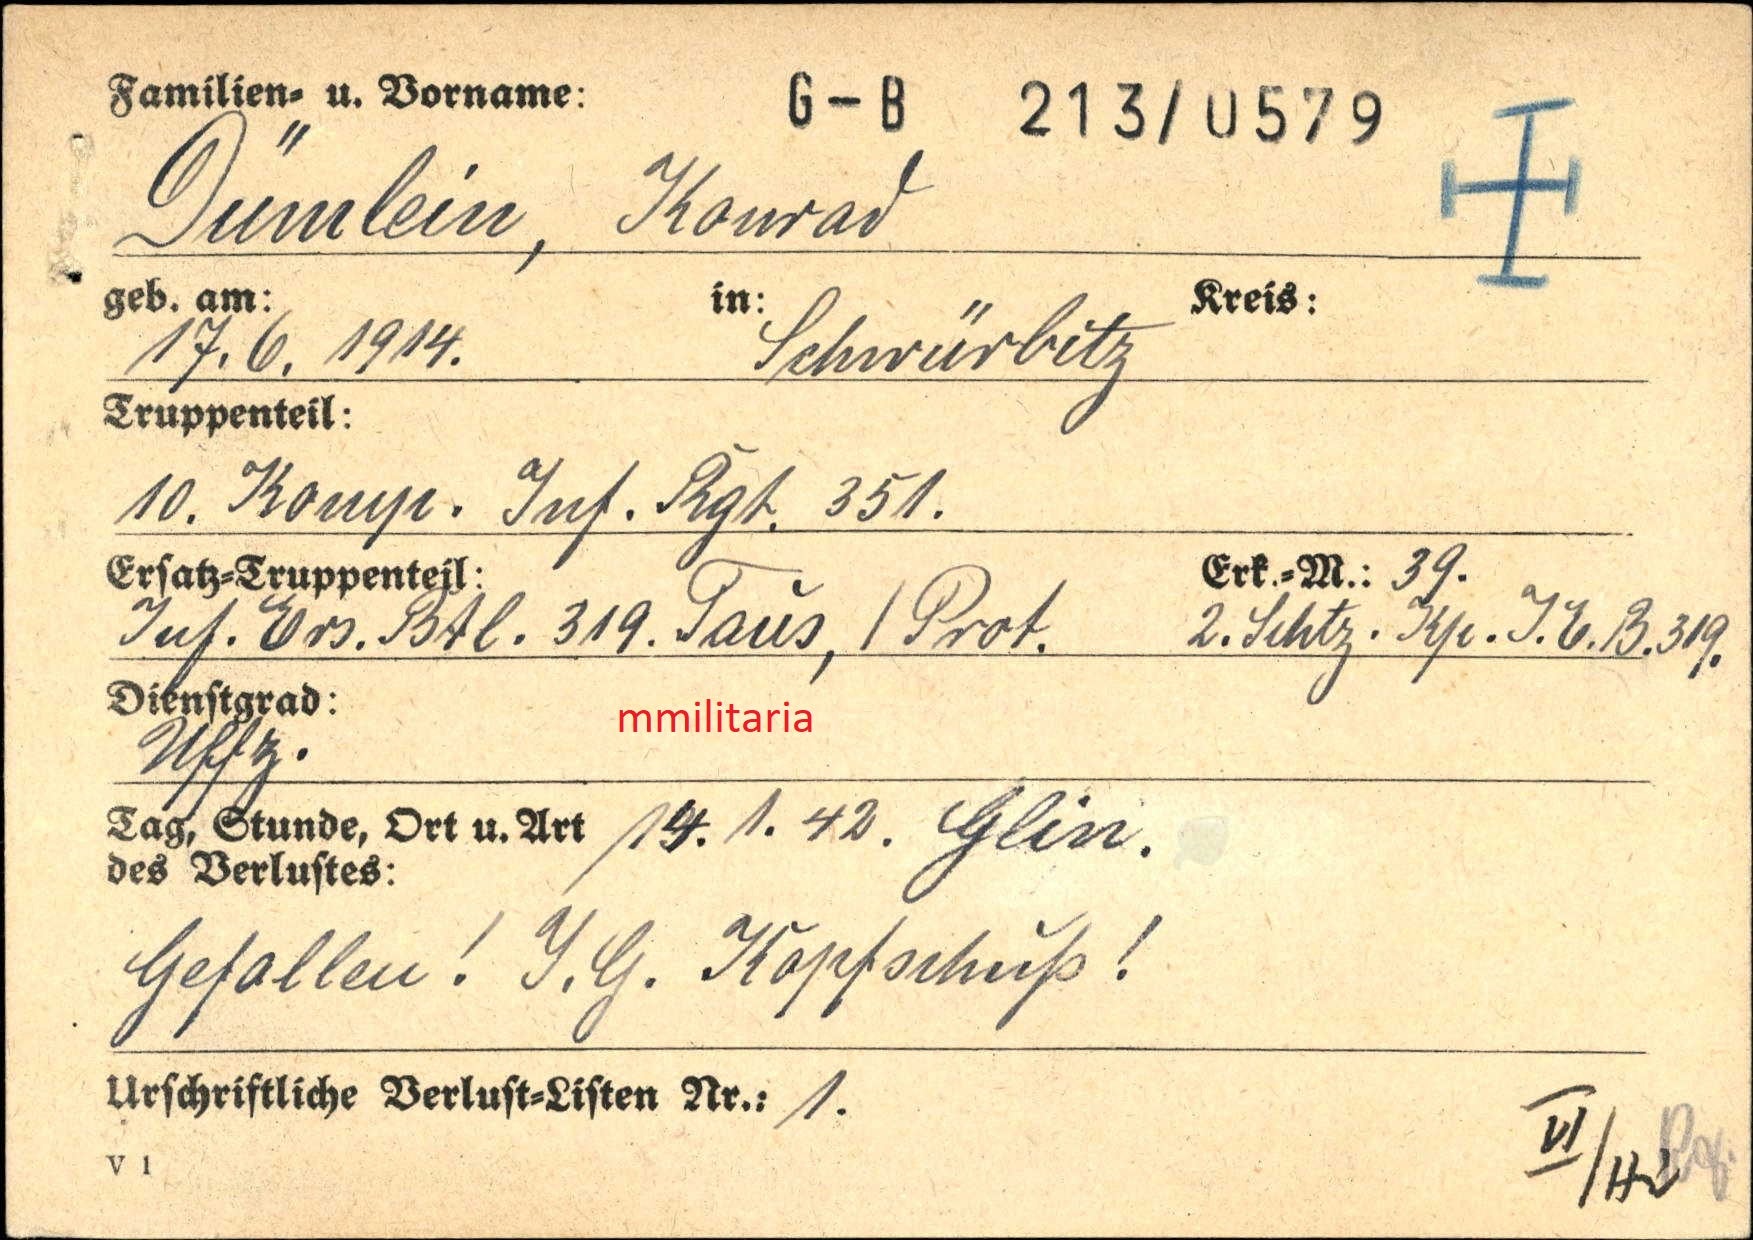 Familien- u. Vorname: G-B 213/0579
Dümlein, Konrad
geb. am: in: Kreis:
17. 6. 1914. Schwürbitz
Truppenteil:
10. Komp. Inf. Rgt. 351.
Ersatz-Truppenteil: Erk.-M.: 39.
Inf. Ers. Btl. 319. Taus, / Prot. 2. Schtz. Kp. I. E. B. 319.
Dienstgrad:
mmilitaria
Uffz.
Tag, Stunde, Ort u. Art 14. 1. 42. Glin.
des Verlustes:
Gefallen! I. G. Kopfschuß!
Urschriftliche Verlust-Listen Nr.: 1.
V 1
VI/